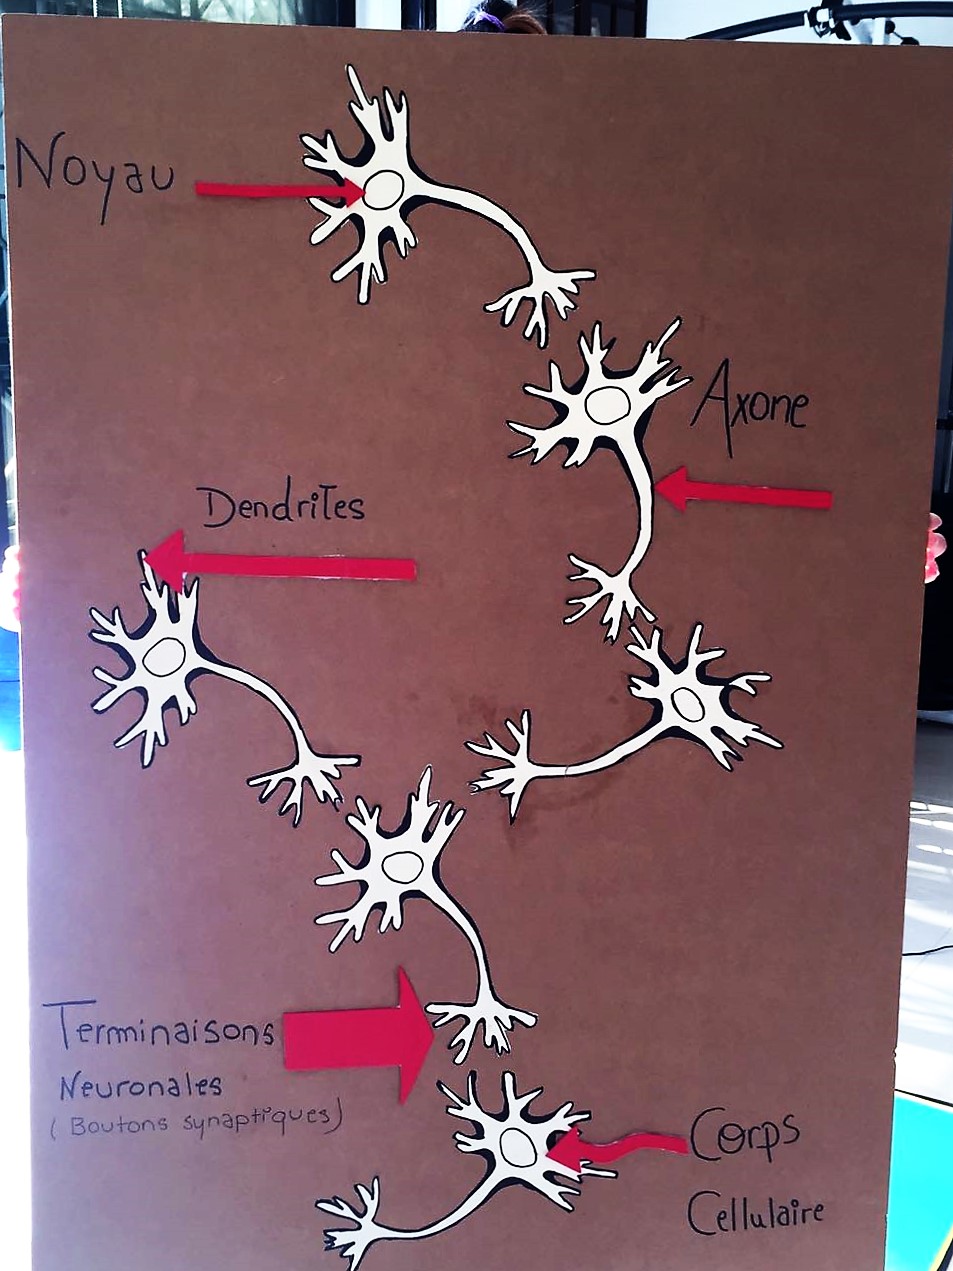 Noyau
Axone
Dendrites
Terminaisons
Neuronales
(Boutons synaptiques)
Corps
Cellulaire